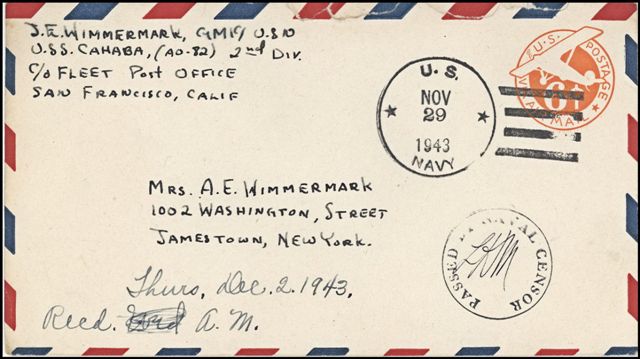 J.E. WIMMERMARK, GM1c USN
U.S.S. CAHABA, (AO-82) 2nd DIV.
C/O FLEET POST OFFICE
SAN FRANCISCO, CALIF
U.S.
NOV
29
1943
NAVY
U.S. POSTAGE
6¢
AIR MAIL
MRS. A.E. WIMMERMARK
1002 WASHINGTON, STREET
JAMESTOWN, NEW YORK.
PASSED BY NAVAL CENSOR
Thurs, Dec. 2. 1943.
Recd. A.M.